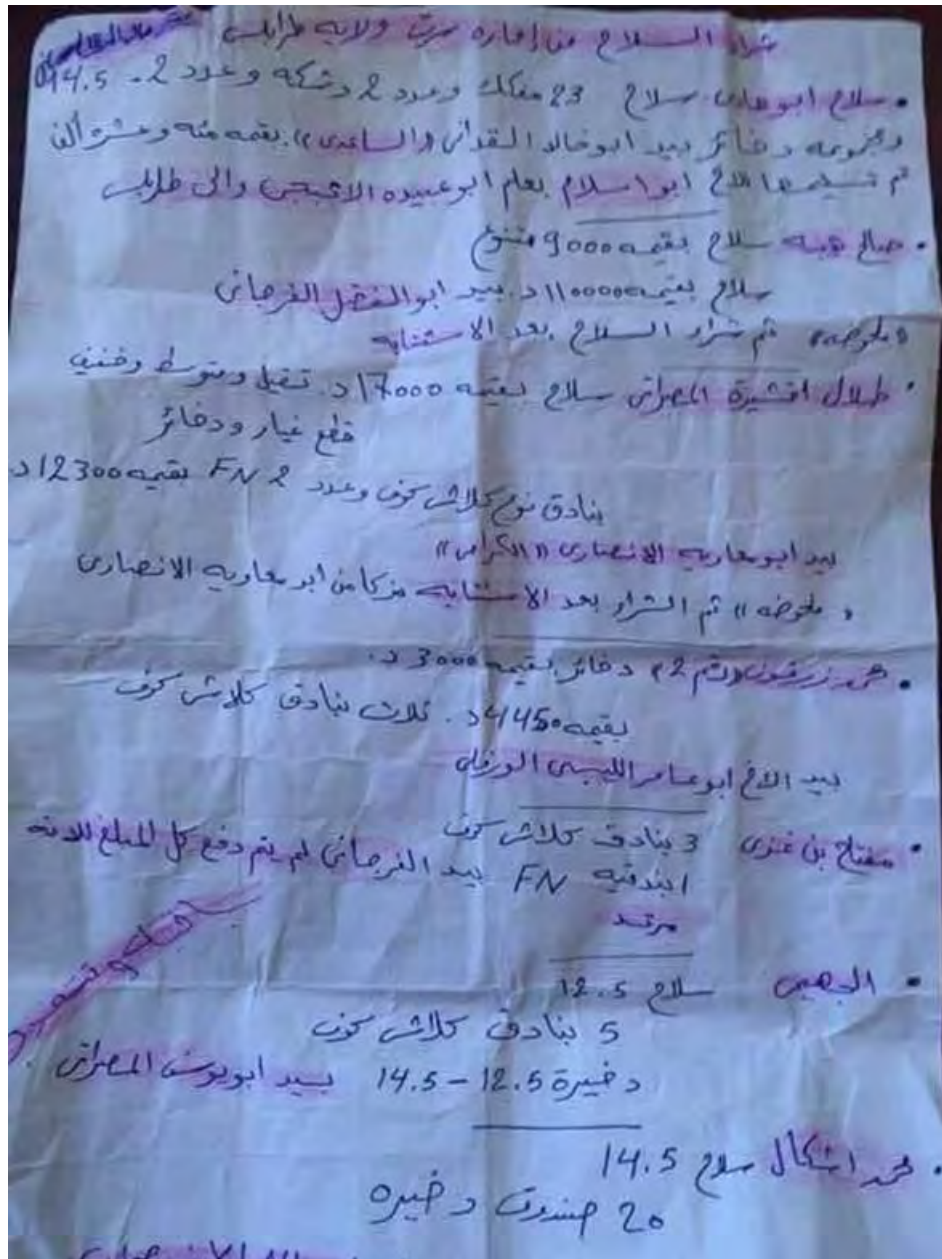 شراء السلاح من إمارة سرت ولاية طرابلس
• سلاح ابو هادي سلاح 23 مفكك وعدد 2 دشكه وعدد 2 - 14.5
ومجموعه دخائر بيد ابو خالد القدافي «الساعدي» بقيمه مئه وعشره ألف
تم تسليمها للاخ ابو اسلام بعلم ابو عبيده والى طرابلس
• صالح هيبه سلاح بقيمه 9000 متنوع
سلاح بقيمه 110000 د. بيد ابو الفضل الفرجاني
«ملحوضه» تم شراء السلاح بعد الاستتابه
• طلال المصراتى سلاح بقيمه 17000 د. تقيل ومتوسط وخفيف
قطع غيار ودخائر
بنادق نوع كلاش كوف وعدد 2 FN بقيمه 12300 د.
بيد ابو معاويه الانصارى «الكرامى»
« ملحوضه » تم الشراء بعد الاستتابه مزكا من ابو معاويه الانصارى
• محمد زرقون «رقم 2» دخائر بقيمه 3000 د.
بقيمه 4450 د. ثلاث بنادق كلاش كوف
بيد الاخ ابو عامر الليبى الورفلى
• مفتاح بن غزى 3 بنادق كلاش كوف
1 بندقيه FN بيد الفرجانى لم يتم دفع كل المبلغ لانه
مرتد
• سلاح 12.5
5 بنادق كلاش كوف
دخيرة 12.5 – 14.5 بيد ابو يوسف المصراتى
• محمد اشكال سلاح 14.5
20 صندوق دخيره